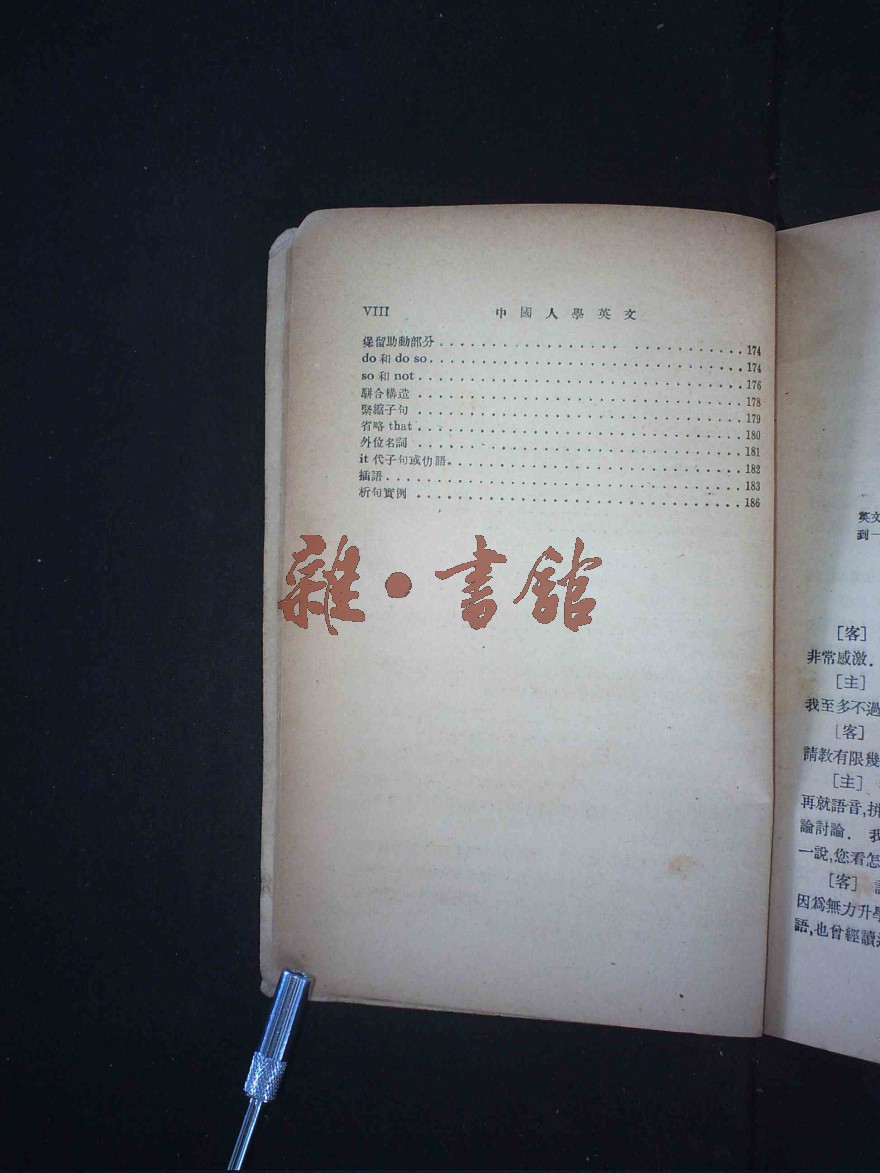 VIII 中國人學英文
保留助動部分 174
do 和 do so 174
so 和 not 176
騈合構造 178
緊縮子句 179
省略 that 180
外位名詞 181
it 代子句或仂語 182
插語 183
析句實例 186
雜·書館
英文
到一
[客]
非常感激.
[主]
我至多不過
[客]
請教有限幾
[主]
再就語音,拼
論討論. 我
一說,您看怎
[客]
因爲無力升學
語,也曾經讀